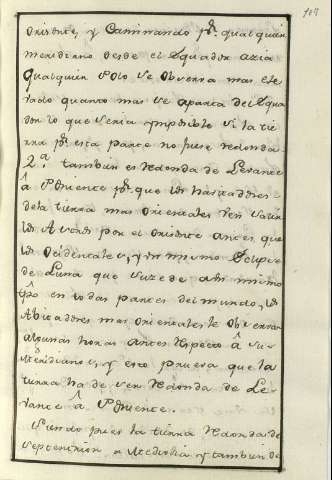 107
Oriente, y Caminando pr. qualquier
meridiano desde el Equador azia
qualquier Polo se observa mas ele-
vado quanto mas se aparta del Equa
dor lo que seria ymposible si la tie
rra pr. esta parte no fuese redonda.
2.a tambien es Redonda de Levante
â Poniente pr. que los havitadores
de la tierra mas orientales ven salir
los Astros por el oriente antes que
los Ocidentales, y un mismo Eclipse
de Luna que suzede a un mismo
tpô en todas partes del mundo, los
Abitadores mas orientales le observan
algunas horas antes respecto â su
Meridiano, y esto prueva que la
tierra ha de ser Redonda de Le-
vante â Poniente.
Siendo pues la tierra Redonda de
septentrion a Mediodia y tambien de